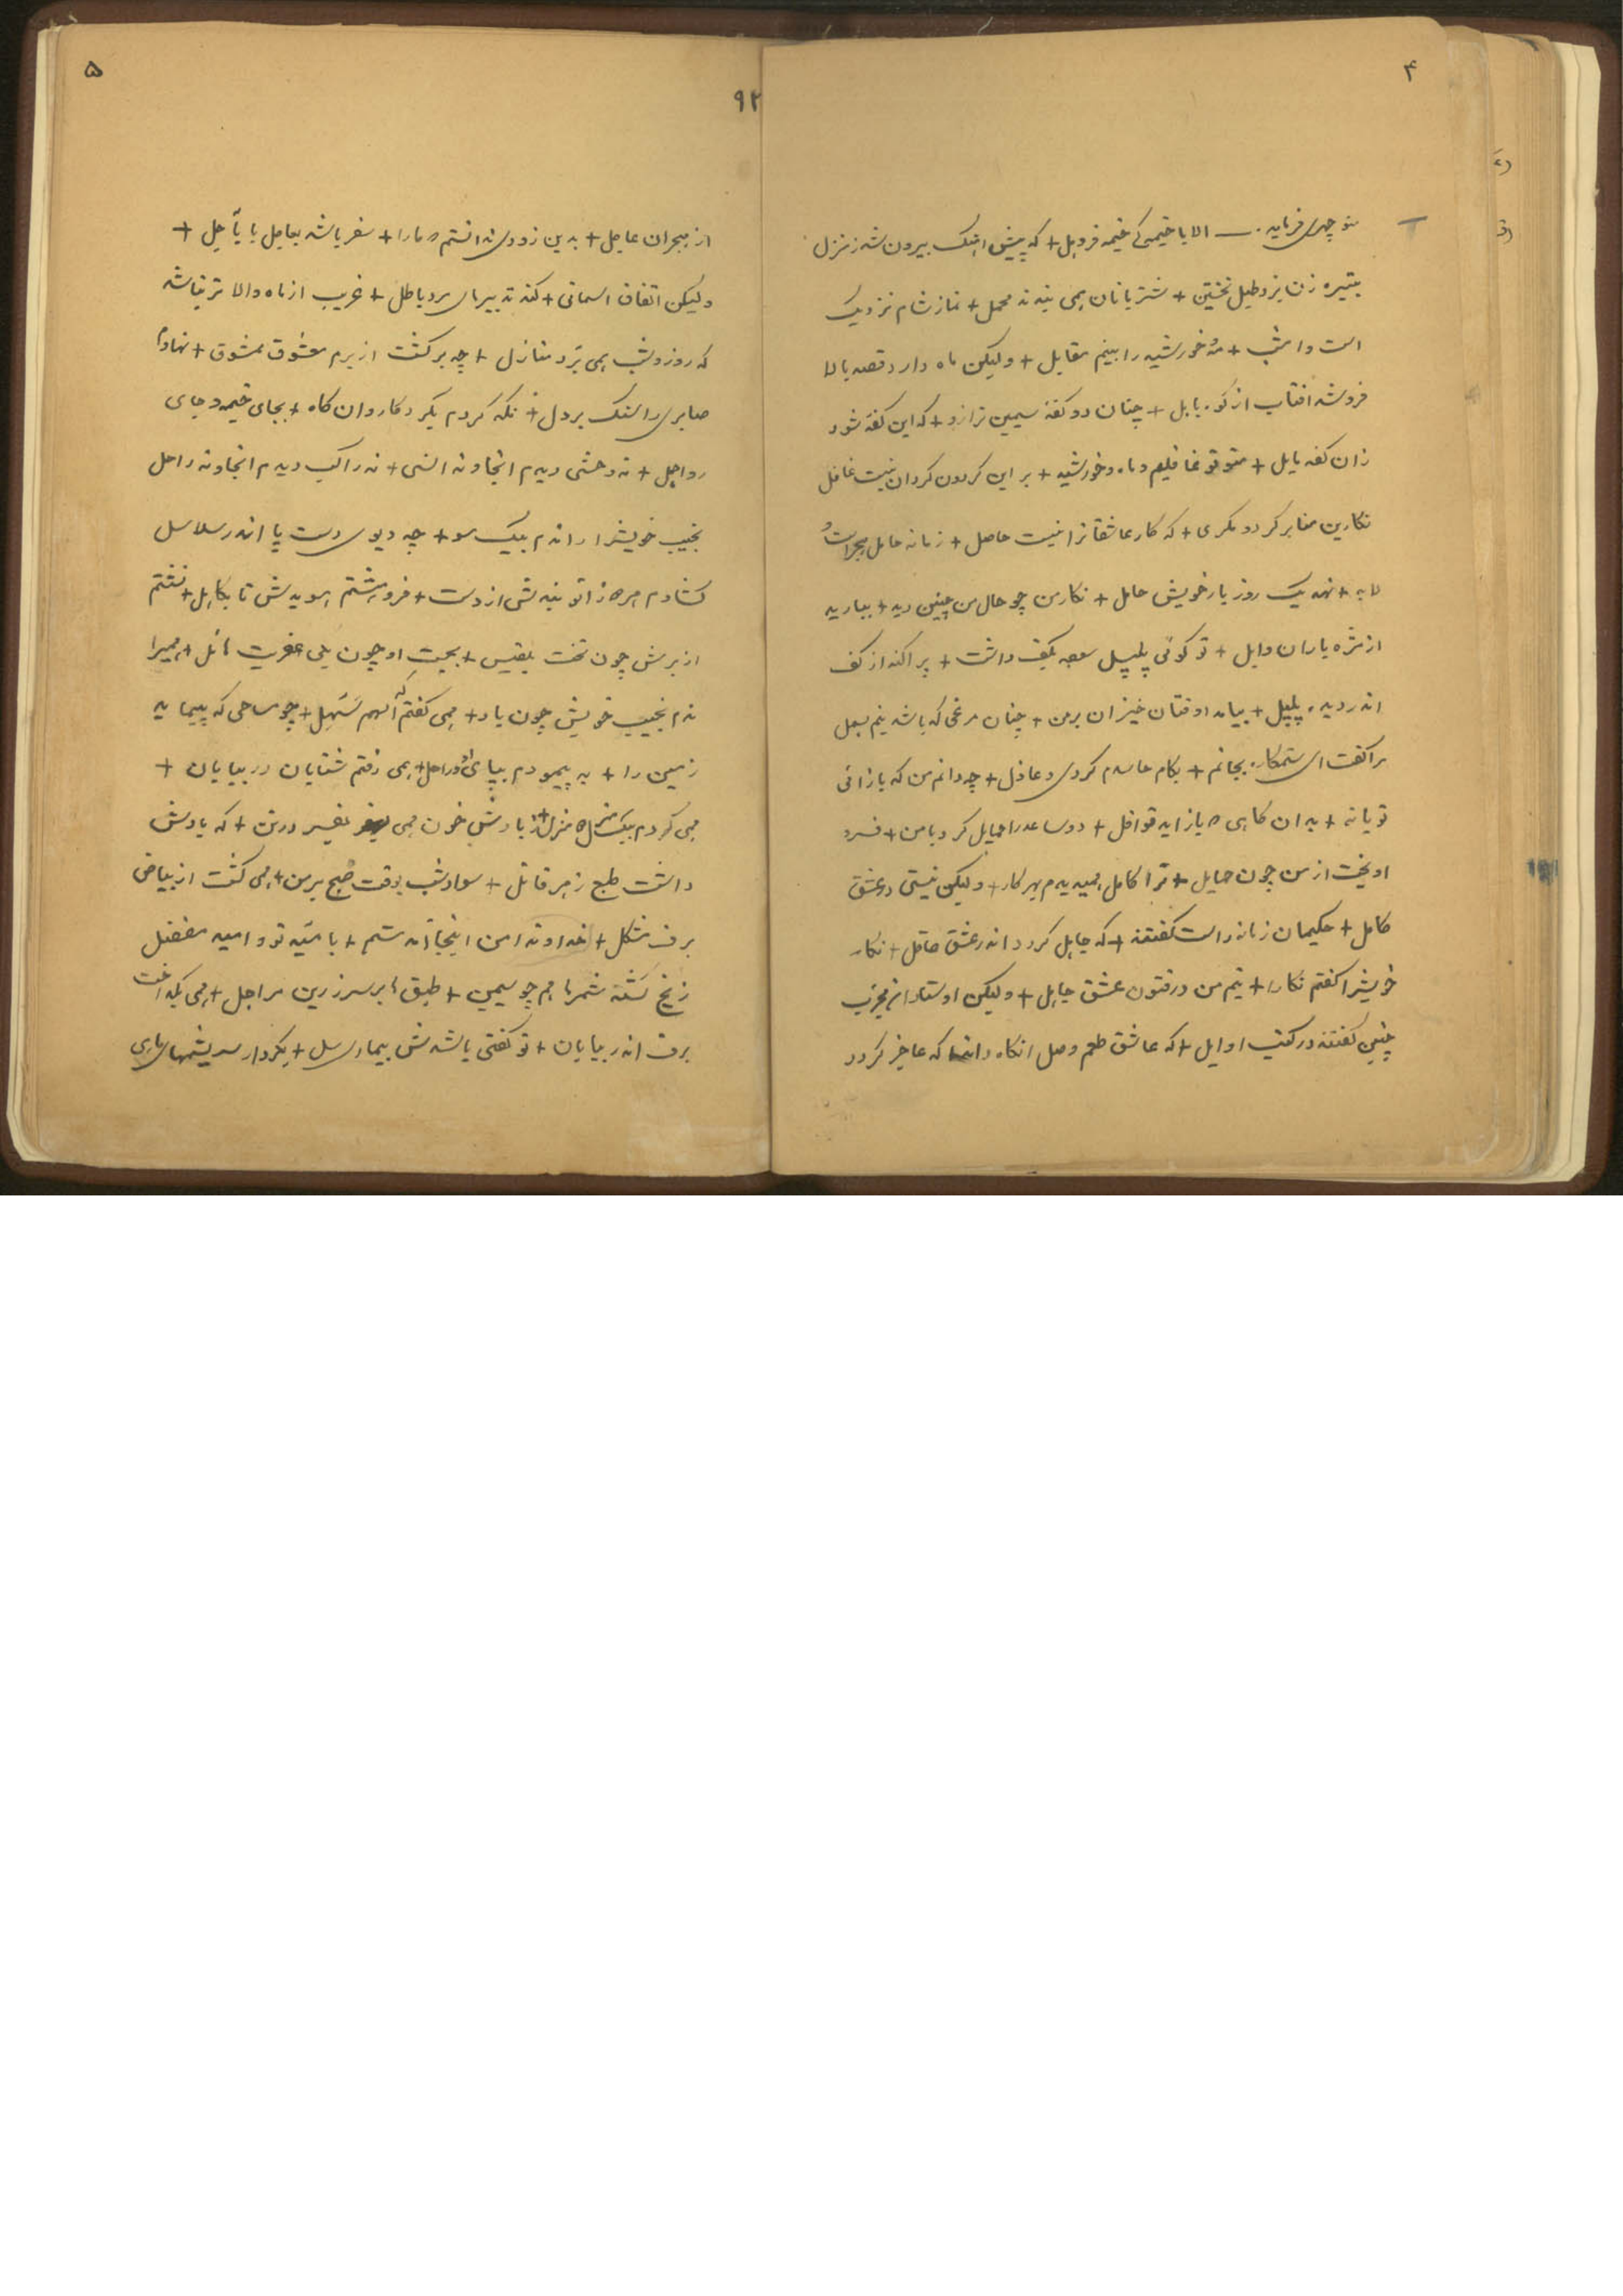 ۴
منوچهری فرماید. — الا یا خیمگی خیمه فروهل + که پیش اهنک بیرون شد ز منزل
بتبیره زن بزد طبل نخستین + شتربانان همی بندند محمل + نماز شام نزدیک
است و امشب + مه و خورشید را بینم مقابل + ولیکن ماه دارد قصد بالا
فروشد افتاب از کوه بابل + چنان دو کفه سیمین ترازو + که این کفه شود
زان کفه مایل + فلیم و ماه و خورشید + بر این کردون کردان نیست غافل
نکارین منا بر کرد و مکری + که کار عاشقانرا نیست حاصل + زمانه حامل هجراست و
لابد + نهد یک روز بار خویش حامل + نکار من چو حال من چنین دید + ببارید
از مژه باران وابل + تو کوئی پلپل سوده بکف داشت + پراکند از کف
اندر دیده پلپل + بیامد اوفتان خیزان بر من + چنان مرغی که باشد نیم بسمل
مرا کفت ای ستمکاره بجانم + بکام حاسدم کردی و عاذل + چه دانم من که بازائی
تو یا نه + بد ان کاهی که باز اید قوافل + دو ساعد را حمایل کرد با من + فرو
اویخت از من چون حمایل + ترا کامل همیدیدم بهر کار + ولیکن نیستی در عشق
کامل + حکیمان زمانه راست کفتند + که جاهل کردد اندر عشق عاقل + نکار
خویشرا کفتم نکارا + نیم من در فنون عشق جاهل + ولیکن اوستادان مجرب
چنین کفتند در کتب اوایل + که عاشق طعم وصل انکاه داند که عاجز کردد
۵
۹۲
از هجران عاجل + بدین زودی ندانستم که مارا + سفر باشد بعاجل یا بآجل +
ولیکن اتفاق اسمانی + کند تدبیرهای مرد باطل + غریب از ماه والاتر نباشد
که روز و شب همی برد منازل + چه برکشت از برم معشوق ممشوق + نهادم
صابری را سنک بر دل + نکه کردم بکرد کاروان کاه + بجای خیمه و جای
رواحل + نه وحشی دیدم انجا و نه انسی + نه راکب دیدم انجا و نه راحل
نجیب خویشرا راندم بیک سو + چه دیوی دست پا اندر سلاسل
کشادم هر دو زانو بندش از دست + فروهشتم هویدش تا بکاهل + نشستم
از برش چون تخت بلقیس + بجست او چون یکی عفریت هائل + همیرا
ندم نجیب خویش چون باد + همی کفتم که اللهم سهل + چو مساحی که پیماید
زمین را + به پیمودم بپای او مراحل + همی رفتم شتابان در بیابان +
همی کردم بیک منزل دو منزل + ز بادش خون همی بفسرد در تن + که بادش
داشت طبع زهر قاتل + سواد شب بوقت صبح بر من + همی کشت از بیاض
برف مشکل + خداوندا من اینجا آمدستم + بامید تو و امید مفضل
ز یخ کشته شمرها هم چو سیمین + طبق ها بر سر زرین مراجل + همی بکداخت
برف اندر بیابان + تو کفتی باشدش بیماری سل + بکردار سریشمهای ماهی